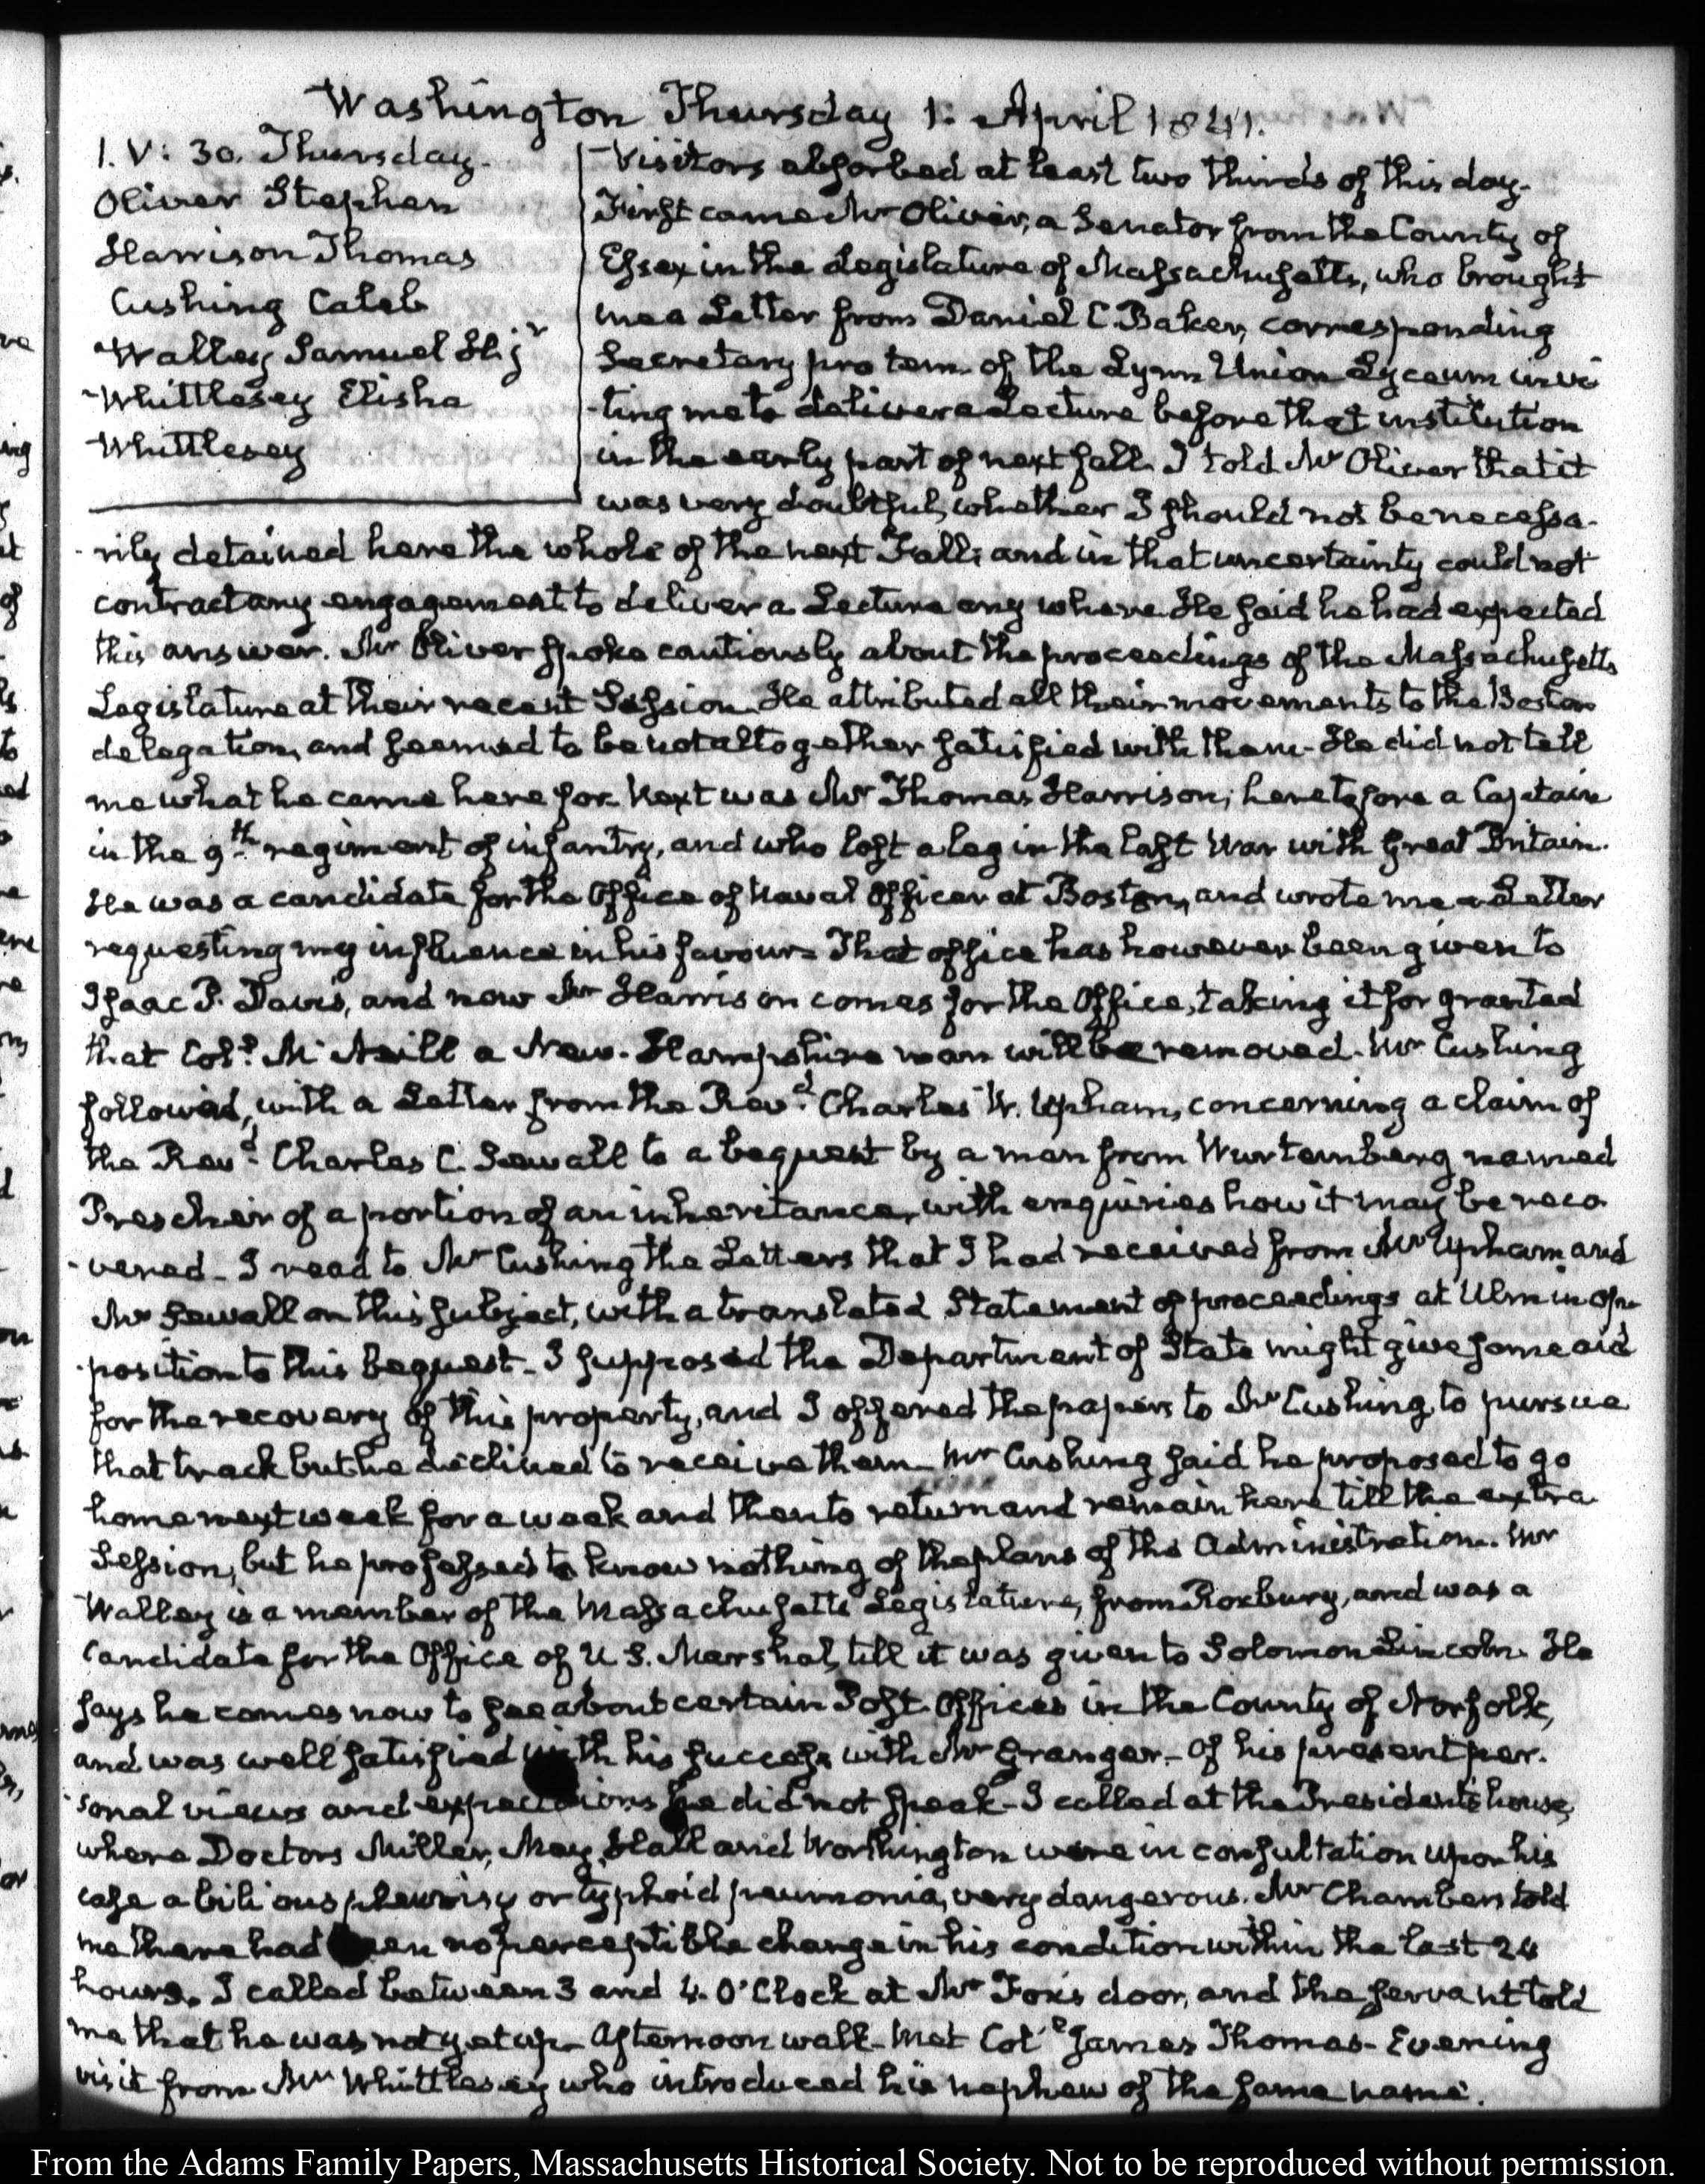 Washington Thursday 1. April 1841.
1. V: 30. Thursday.
Oliver Stephen
Harrison Thomas
Cushing Caleb
Walley Samuel H. jr
Whittlesey Elisha
Whittlesey
Visitors absorbed at least two thirds of this day.
First came Mr Oliver, a Senator from the County of
Essex in the Legislature of Massachusetts, who brought
me a Letter from Daniel C Baker, corresponding
Secretary pro tem. of the Lynn Union Lyceum invi
-ting me to deliver a Lecture before that institution
in the early part of next fall. I told Mr Oliver that it
was very doubtful, whether I should not be necessa-
-rily detained here the whole of the next Fall; and in that uncertainty could not
contract any engagement to deliver a Lecture any where. He said he had expected
this answer. Mr Oliver spoke cautiously about the proceedings of the Massachusetts
Legislature at their recent Session. He attributed all their movements to the Boston
delegation, and seemed to be not altogether satisfied with them. He did not tell
me what he came here for. Next was Mr Thomas Harrison; heretofore a Captain
in the 9th regiment of infantry, and who lost a leg in the last War with Great Britain.
He was a candidate for the Office of Naval Officer at Boston, and wrote me a Letter
requesting my influence in his favour. That office has however been given to
Isaac P. Davis, and now Mr Harrison comes for the Office, taking it for granted
that Coll. McNeill a New-Hampshire man will be removed. Mr Cushing
followed, with a Letter from the Revd. Charles W. Upham, concerning a claim of
the Revd. Charles C. Sewall to a bequest by a man from Wurtemberg named
Prescher of a portion of an inheritance, with enquiries how it may be reco
-vered. I read to Mr Cushing the Letters that I had received from Mr Upham and
Mr Sewall on this subject, with a translated Statement of proceedings at Ulm in op-
-position to this bequest. I supposed the Department of State might give some aid
for the recovery of this property, and I offered the papers to Mr Cushing, to pursue
that track but he declined to receive them. Mr Cushing said he proposed to go
home next week for a week and then to return and remain here till the extra
Session, but he professed to know nothing of the plans of the Administration. Mr
Walley is a member of the Massachusetts Legislature, from Roxbury, and was a
Candidate for the Office of U S. Marshal, till it was given to Solomon Lincoln. He
says he comes now to see about certain Post-Offices in the County of Norfolk,
and was well satisfied with his success with Mr Granger. Of his present per-
-sonal views and expectations he did not speak. I called at the President's house,
where Doctors Miller, May, Hall and Worthington were in consultation upon his
case a bilious pleurisy or typhoid pneumonia, very dangerous. Mr Chambers told
me there had been no perceptible change in his condition within the last 24
hours. I called between 3 and 4. O'Clock at Mr Fox's door, and the servant told
me that he was not yet up. Afternoon walk. Met Coll James Thomas. Evening
visit from Mr Whittlesey who introduced his nephew of the same name.
From the Adams Family Papers, Massachusetts Historical Society. Not to be reproduced without permission.